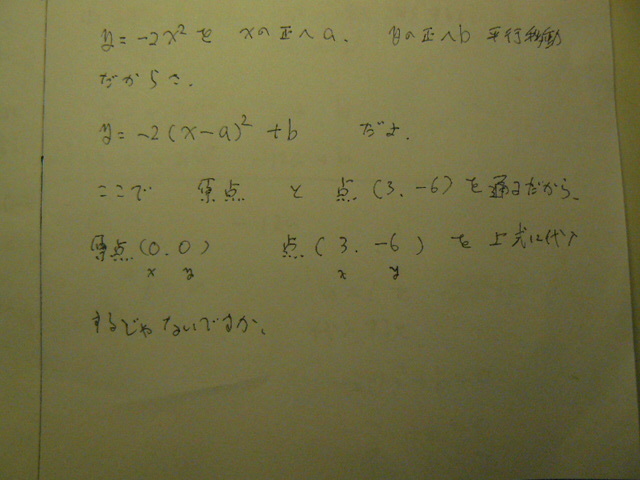 y=-2x²を xの正へa. yの正へb 平行移動
だからさ.
y=-2(x-a)²+b だよ.
ここで 原点 と 点(3.-6)を通るだから.
原点(0.0) 点(3.-6)を上式に代入
x y x y
するじゃないですか.